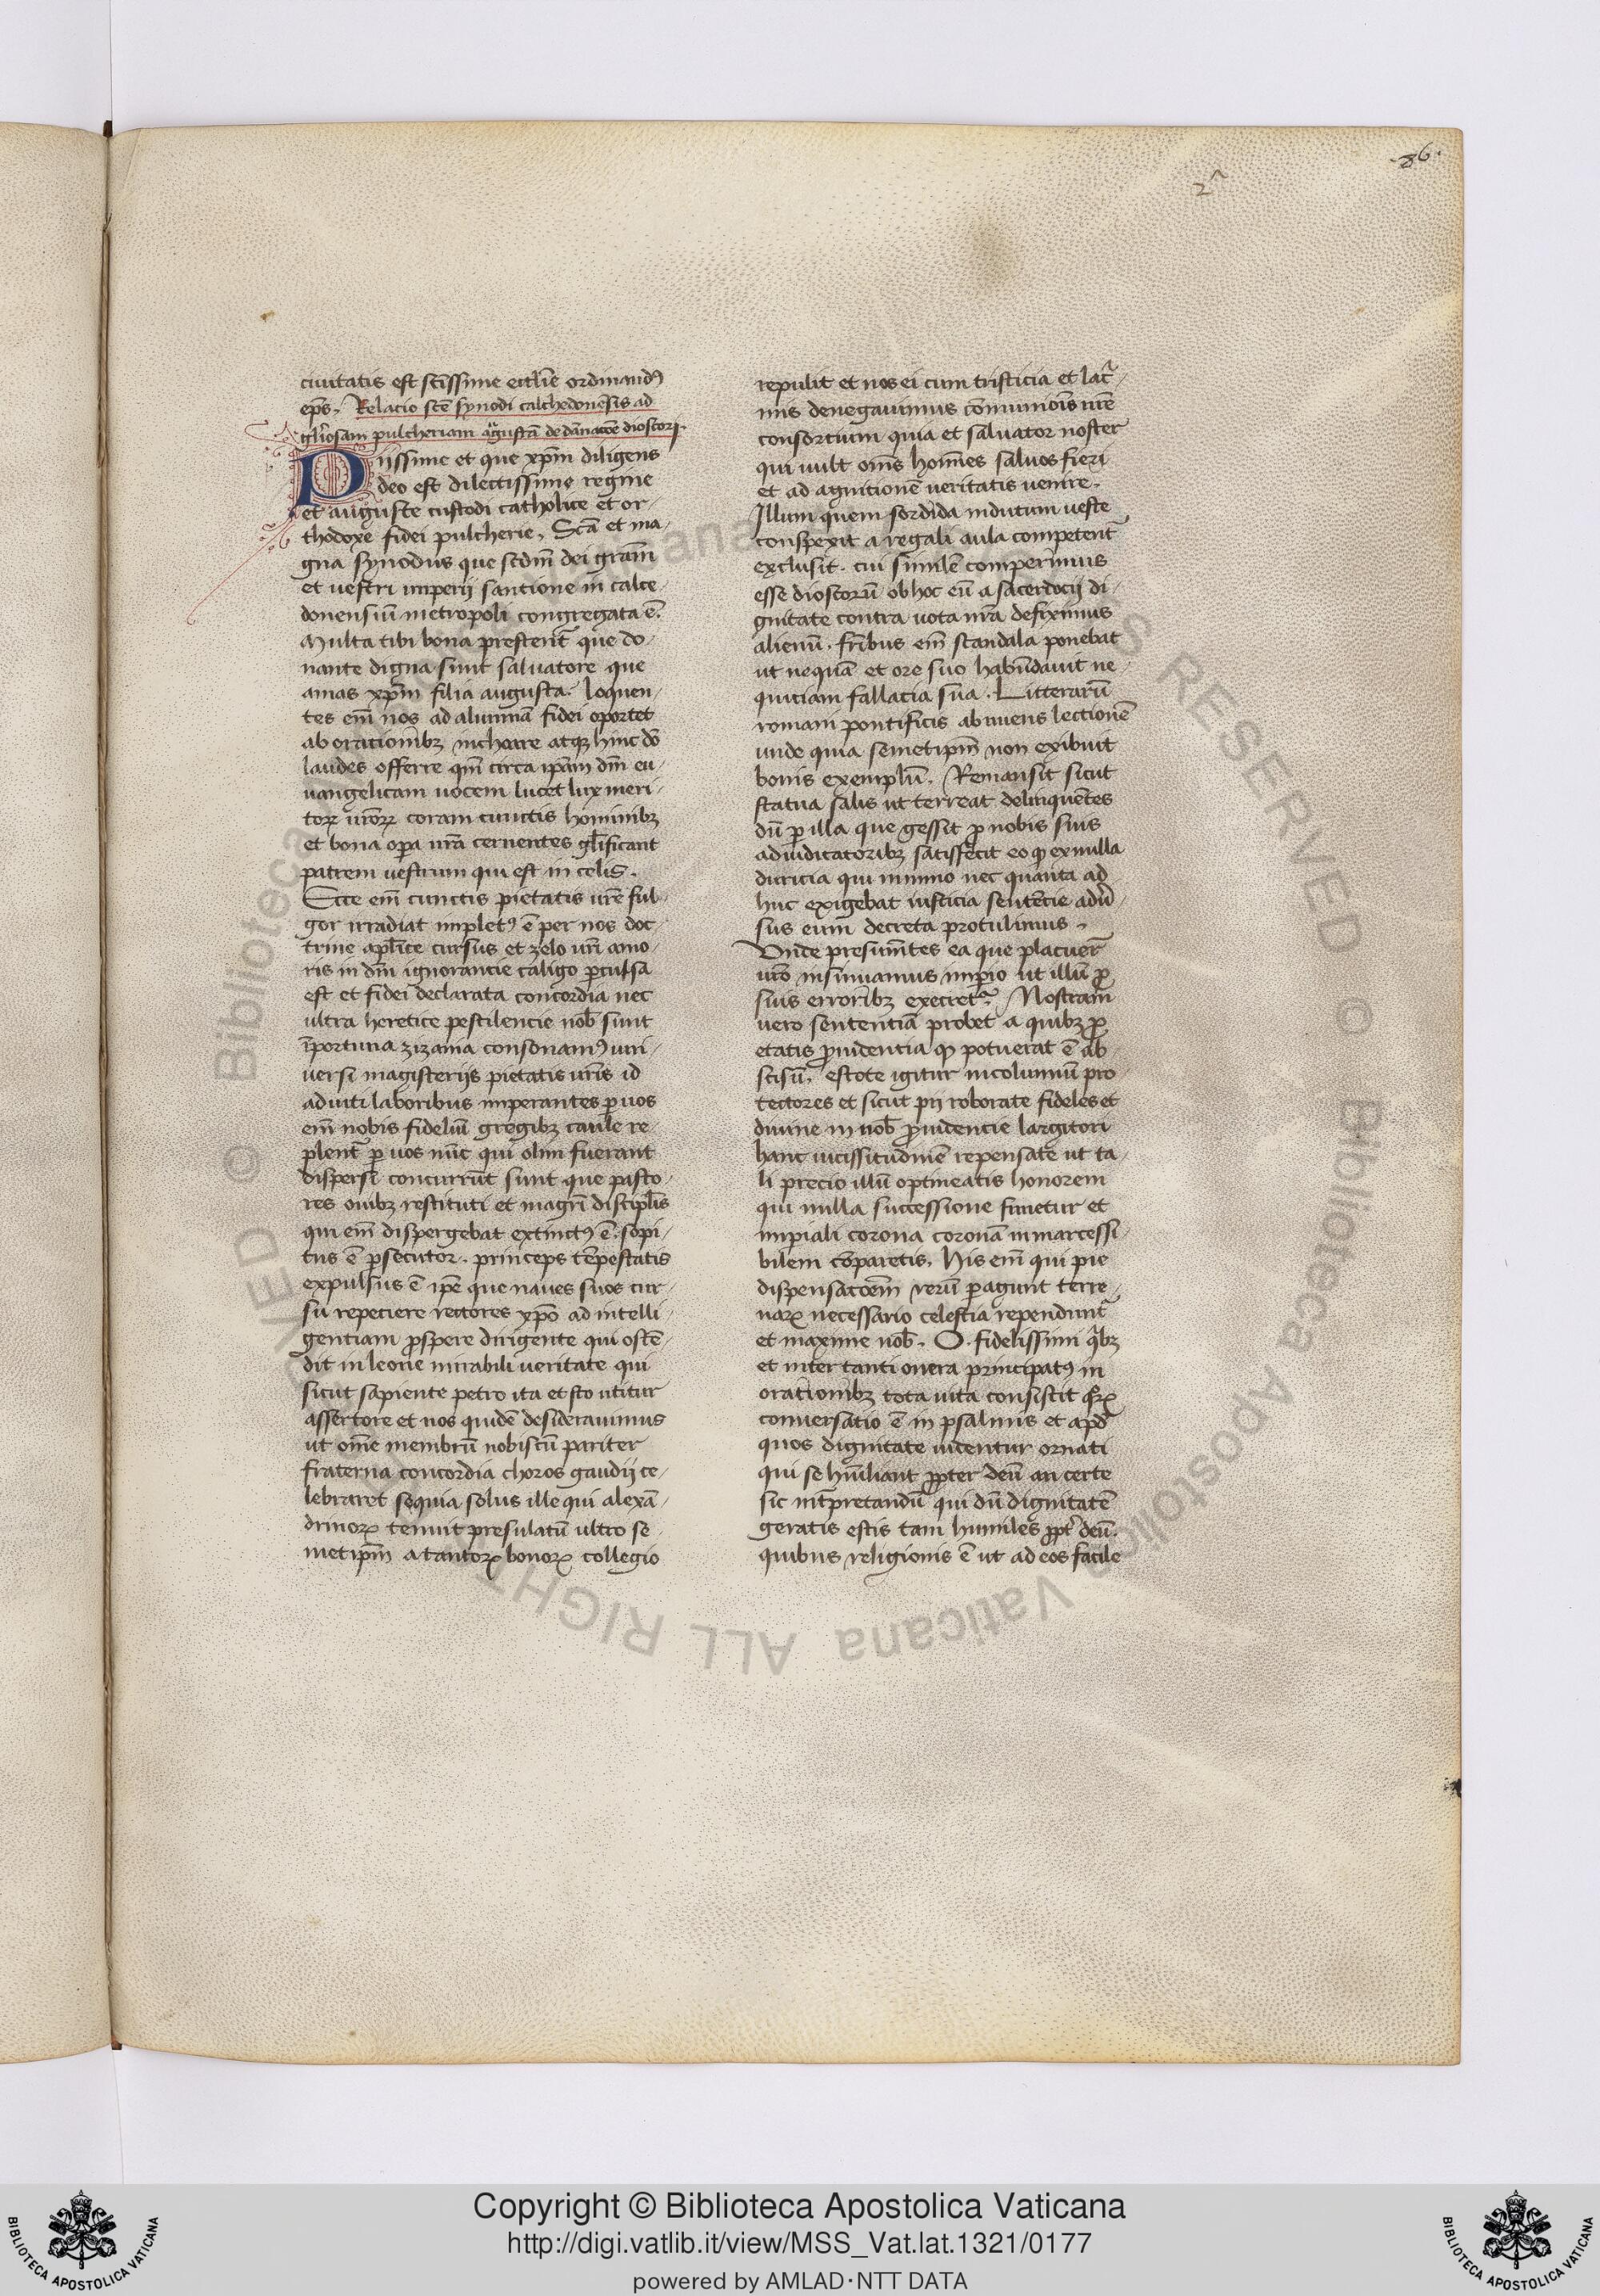 ·86·
2ᵃ
ciuitatis est sctissime eccl̄ie ordinand9
ep̄s. Relacio sctē synodi calchedonēsis ad
gl̄iosam pulcheriam augustā de dānacōe dioscori.
Piissime et que xp̄m diligens
deo est dilectissime regine
et auguste custodi catholice et or-
thodoxe fidei pulcherie. Scā et ma-
gna synodus que scdm̄ dei gram̄
et vestri imperij sanctione in calce-
donensiū metropoli congregata ē.
Multa tibi bona prestent͛ que do-
nante digna sunt saluatore que
amas xp̄m filia augusta. loquen-
tes em̄ nos ad alumnā fidei oportet
ab orationibꝫ inchoare atqꝫ hinc dō
laudes offerre qm̄ circa ipām dm̄ eu-
uangelicam uocem lucet lux meri-
toꝝ uroꝝ coram cunctis hominibꝫ
et bona opa urā cernentes gl̄ificant
patrem uestrum qui est in celis.
Ecce em̄ cunctis pietatis urē ful-
gor irradiat implet9 ē per nos doc-
trine apl̄ice cursus et zelo urī amo-
ris in dm̄ ignorancie caligo ꝑculsa
est et fidei declarata concordia nec
ultra heretice pestilencie nob̄ sunt
īportuna zizania consonam9 uni-
uersi magisterijs pietatis urīs id
aduiti laboribus imperantes ꝑ uos
em̄ nobis fideliū gregibꝫ caule re-
plent͛ ꝑ uos nūc qui olim fuerant
dispersi concurrūt sunt que pasto-
res ouibꝫ restituti et magrī discipl̄is
qui em̄ dispergebat extinct9 ē. sopi-
tus ē ꝑsecutor. princeps tēpestatis
expulsus ē ipē que naues suos cur-
su repeciere rectores xpō ad intelli-
gentiam ꝓspere dirigente qui ostē-
dit in leone mirabili ueritate qui
sicut sapiente petro ita et sto utitur
assertore et nos quidē desiderauimus
ut om̄e membrū nobiscū pariter
fraterna concordia choros gaudij ce-
lebraret sequia solus ille qui alexā-
drinoꝝ tenuit presulatū ultro se
metipm̄ a tantoꝝ bonoꝝ collegio
repulit et nos ei cum tristicia et lac͛-
mis denegauimus cōmunicōis urē
consortium quia et saluator noster
qui uult om̄s hom̄es saluos fieri
et ad agnitionē ueritatis uenire.
Illum quem sordida indutum ueste
conspexit a regali aula competent͛
exclusit. cui similē comperimus
esse dioscorū ob hoc eū a sacerdocij di-
gnitate contra uota urā defiximus
alienū. fr̄ibus em̄ scandala ponebat
ut nequā et ore suo habūdauit ne-
quiciam fallacia sua. Litterarū
romani pontificis abnuens lectionē
unde quia semetipm̄ non exibuit
bonis exemplū. Remansit sicut
statua salis ut terreat delinquētes
dū ꝑ illa que gessit ꝓ nobis suis
adiudicatoribꝫ satisfecit eo ꝙ ex nulla
duricia qui nimino nec quanta ad
huc exigebat iusticia sentēcie adu͛-
sus eum decreta protulimus.
Unde presumētes ea que placuer͛
urō insinuamus impio ut illū ꝓ
suis erroribꝫ execret͛. Nostram
uero sententiā probet a quibꝫ ꝓ
etatis ꝓuidentia ꝙ potuerat ē ab
scisū. estote igitur incolumiū pro-
tectores et sicut pij roborate fideles et
diuine in nob̄ ꝓuidencie largitori
hanc uicissitudinē repensate ut ta-
li precio illū optineatis honorem
qui nulla successione finietur et
impiali corona coronā inmarcessi-
bilem cōparetis. His em̄ qui pie
dispensacōem̄ rerū ꝑagunt terre-
naꝝ necessario celestia rependunt͛
et maxime nob̄. O fidelissimi qͥbꝫ
et inter tanti onera principat9 in
orationibꝫ tota uita consistit qͦꝝ
conuersatio ē in psalmis et apd͛
quos dignitate uidentur ornati
qui se hūiliant ꝓpter deū an certe
sic int͛pretandū qui dū dignitatē
geratis estis tam humiles ꝓpt͛ deū.
quibus religionis ē ut ad eos facile
Copyright © Biblioteca Apostolica Vaticana
http://digi.vatlib.it/view/MSS_Vat.lat.1321/0177
powered by AMLAD·NTT DATA
BIBLIOTECA APOSTOLICA VATICANA
BIBLIOTECA APOSTOLICA VATICANA